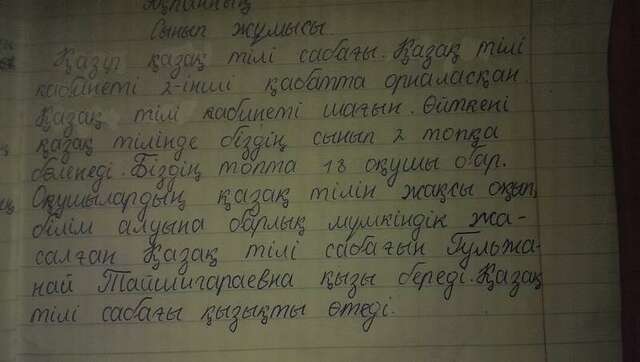 Ақпанның
Сынып жұмысы.
Қазір қазақ тілі сабағы. Қазақ тілі
кабинеті 2-інші қабатта орналасқан
Қазақ тілі кабинеті шағын. Өйткені
қазақ тілінде біздің сынып 2 топқа
бөленеді. Біздің топта 13 оқушы бар.
Оқушылардың қазақ тілін жақсы оқып,
білім алуына барлық мүмкіндік жа-
салған Қазақ тілі сабағын Гульжа-
най Тайшигараевна қызы береді. Қазақ
тілі сабағы қызықты өтеді.